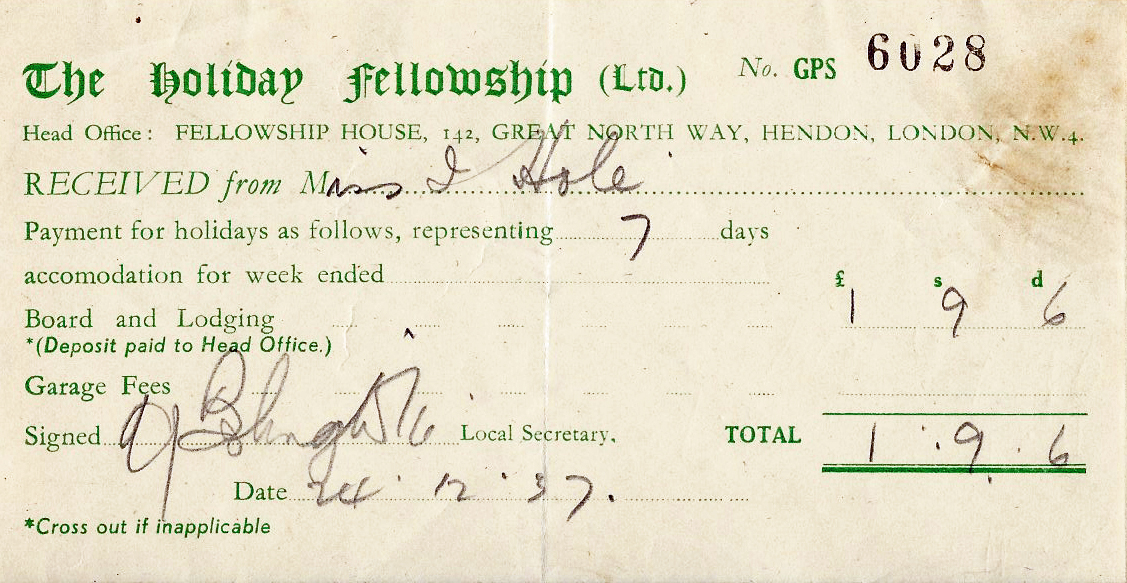 The Holiday Fellowship (Ltd.) No. GPS 6028
Head Office: FELLOWSHIP HOUSE, 142, GREAT NORTH WAY, HENDON, LONDON, N.W.4.
RECEIVED from Miss I Hole
Payment for holidays as follows, representing 7 days
accomodation for week ended
£ s d
Board and Lodging 1 9 6
*(Deposit paid to Head Office.)
Garage Fees
Signed Local Secretary.
TOTAL 1 . 9 . 6
Date 24 . 12 . 37.
*Cross out if inapplicable